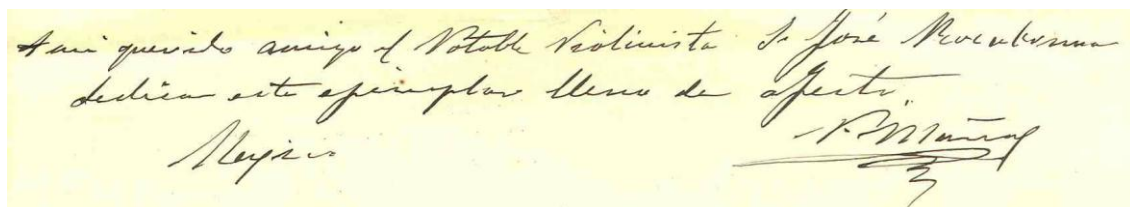 A mi querido amigo el Notable Violinista Sr José Rocabruna
dedica este ejemplar lleno de afecto.
Mexico